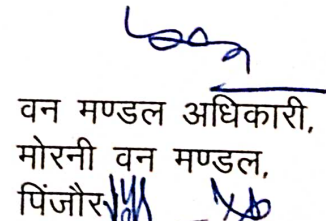 वन मण्डल अधिकारी,
मोरनी वन मण्डल,
पिंजौर